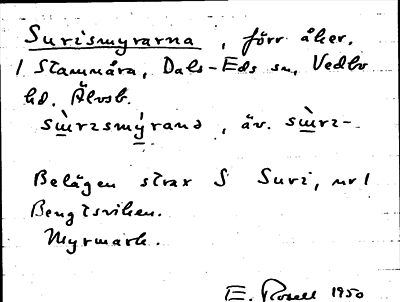 Surismyrarna, förr åker.
1 Stammåra, Dals-Eds sn, Vedbo
hd. Älvsb.
Belägen strax S Suri, nr 1
Bengtsviken.
Myrmark.
E. Rosell 1950